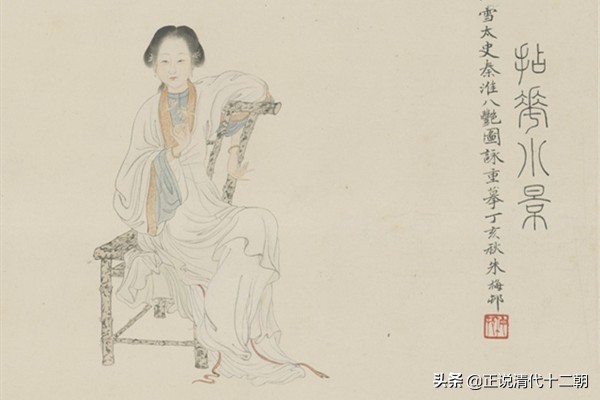 拈花小景
雪太史秦淮八艷圖詠重摹丁亥秋朱梅邨
头条 @正说清代十二朝